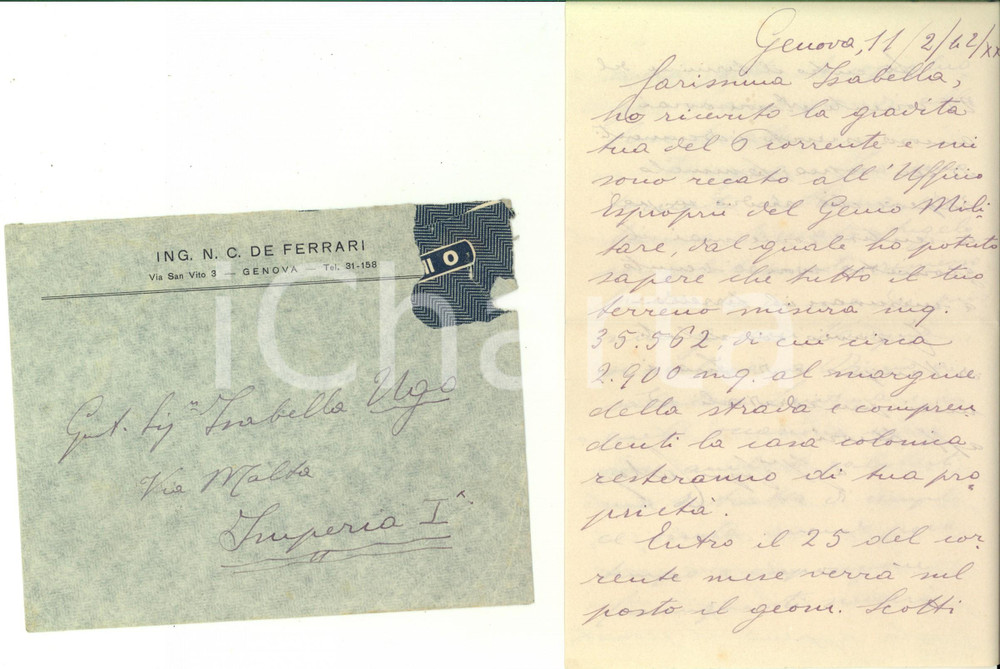 ING. N. C. DE FERRARI
Via San Vito 3 — GENOVA — Tel. 31-158
Gnt. Sig.na Isabella Ugo
Via Malta
Imperia I^
Genova, 11/2/42/XX
Carissima Isabella,
ho ricevuto la gradita
tua del 7 corrente e mi
sono recato all'Ufficio
Espropri del Genio Mili-
tare, dal quale ho potuto
sapere che tutto il tuo
terreno misura mq.
35.562 di cui circa
2.900 mq. al margine
della strada e compren-
denti la casa colonica
resteranno di tua pro-
prietà.
Entro il 25 del cor-
rente mese verrà sul
posto il geom. Scotti
iCharta